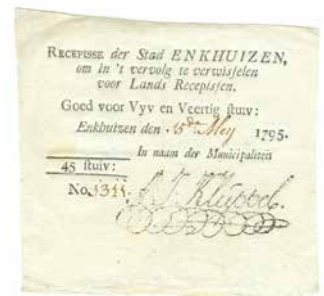 RECEPISSE der Stad ENKHUIZEN,
om in 't vervolg te verwisſelen
voor Lands Recepisſen.
Goed voor Vyv en Veertig ſtuiv:
Enkhuizen den 15de Mey 1795.
In naam der Municipaliteit
45 ſtuiv:
No. 1311.